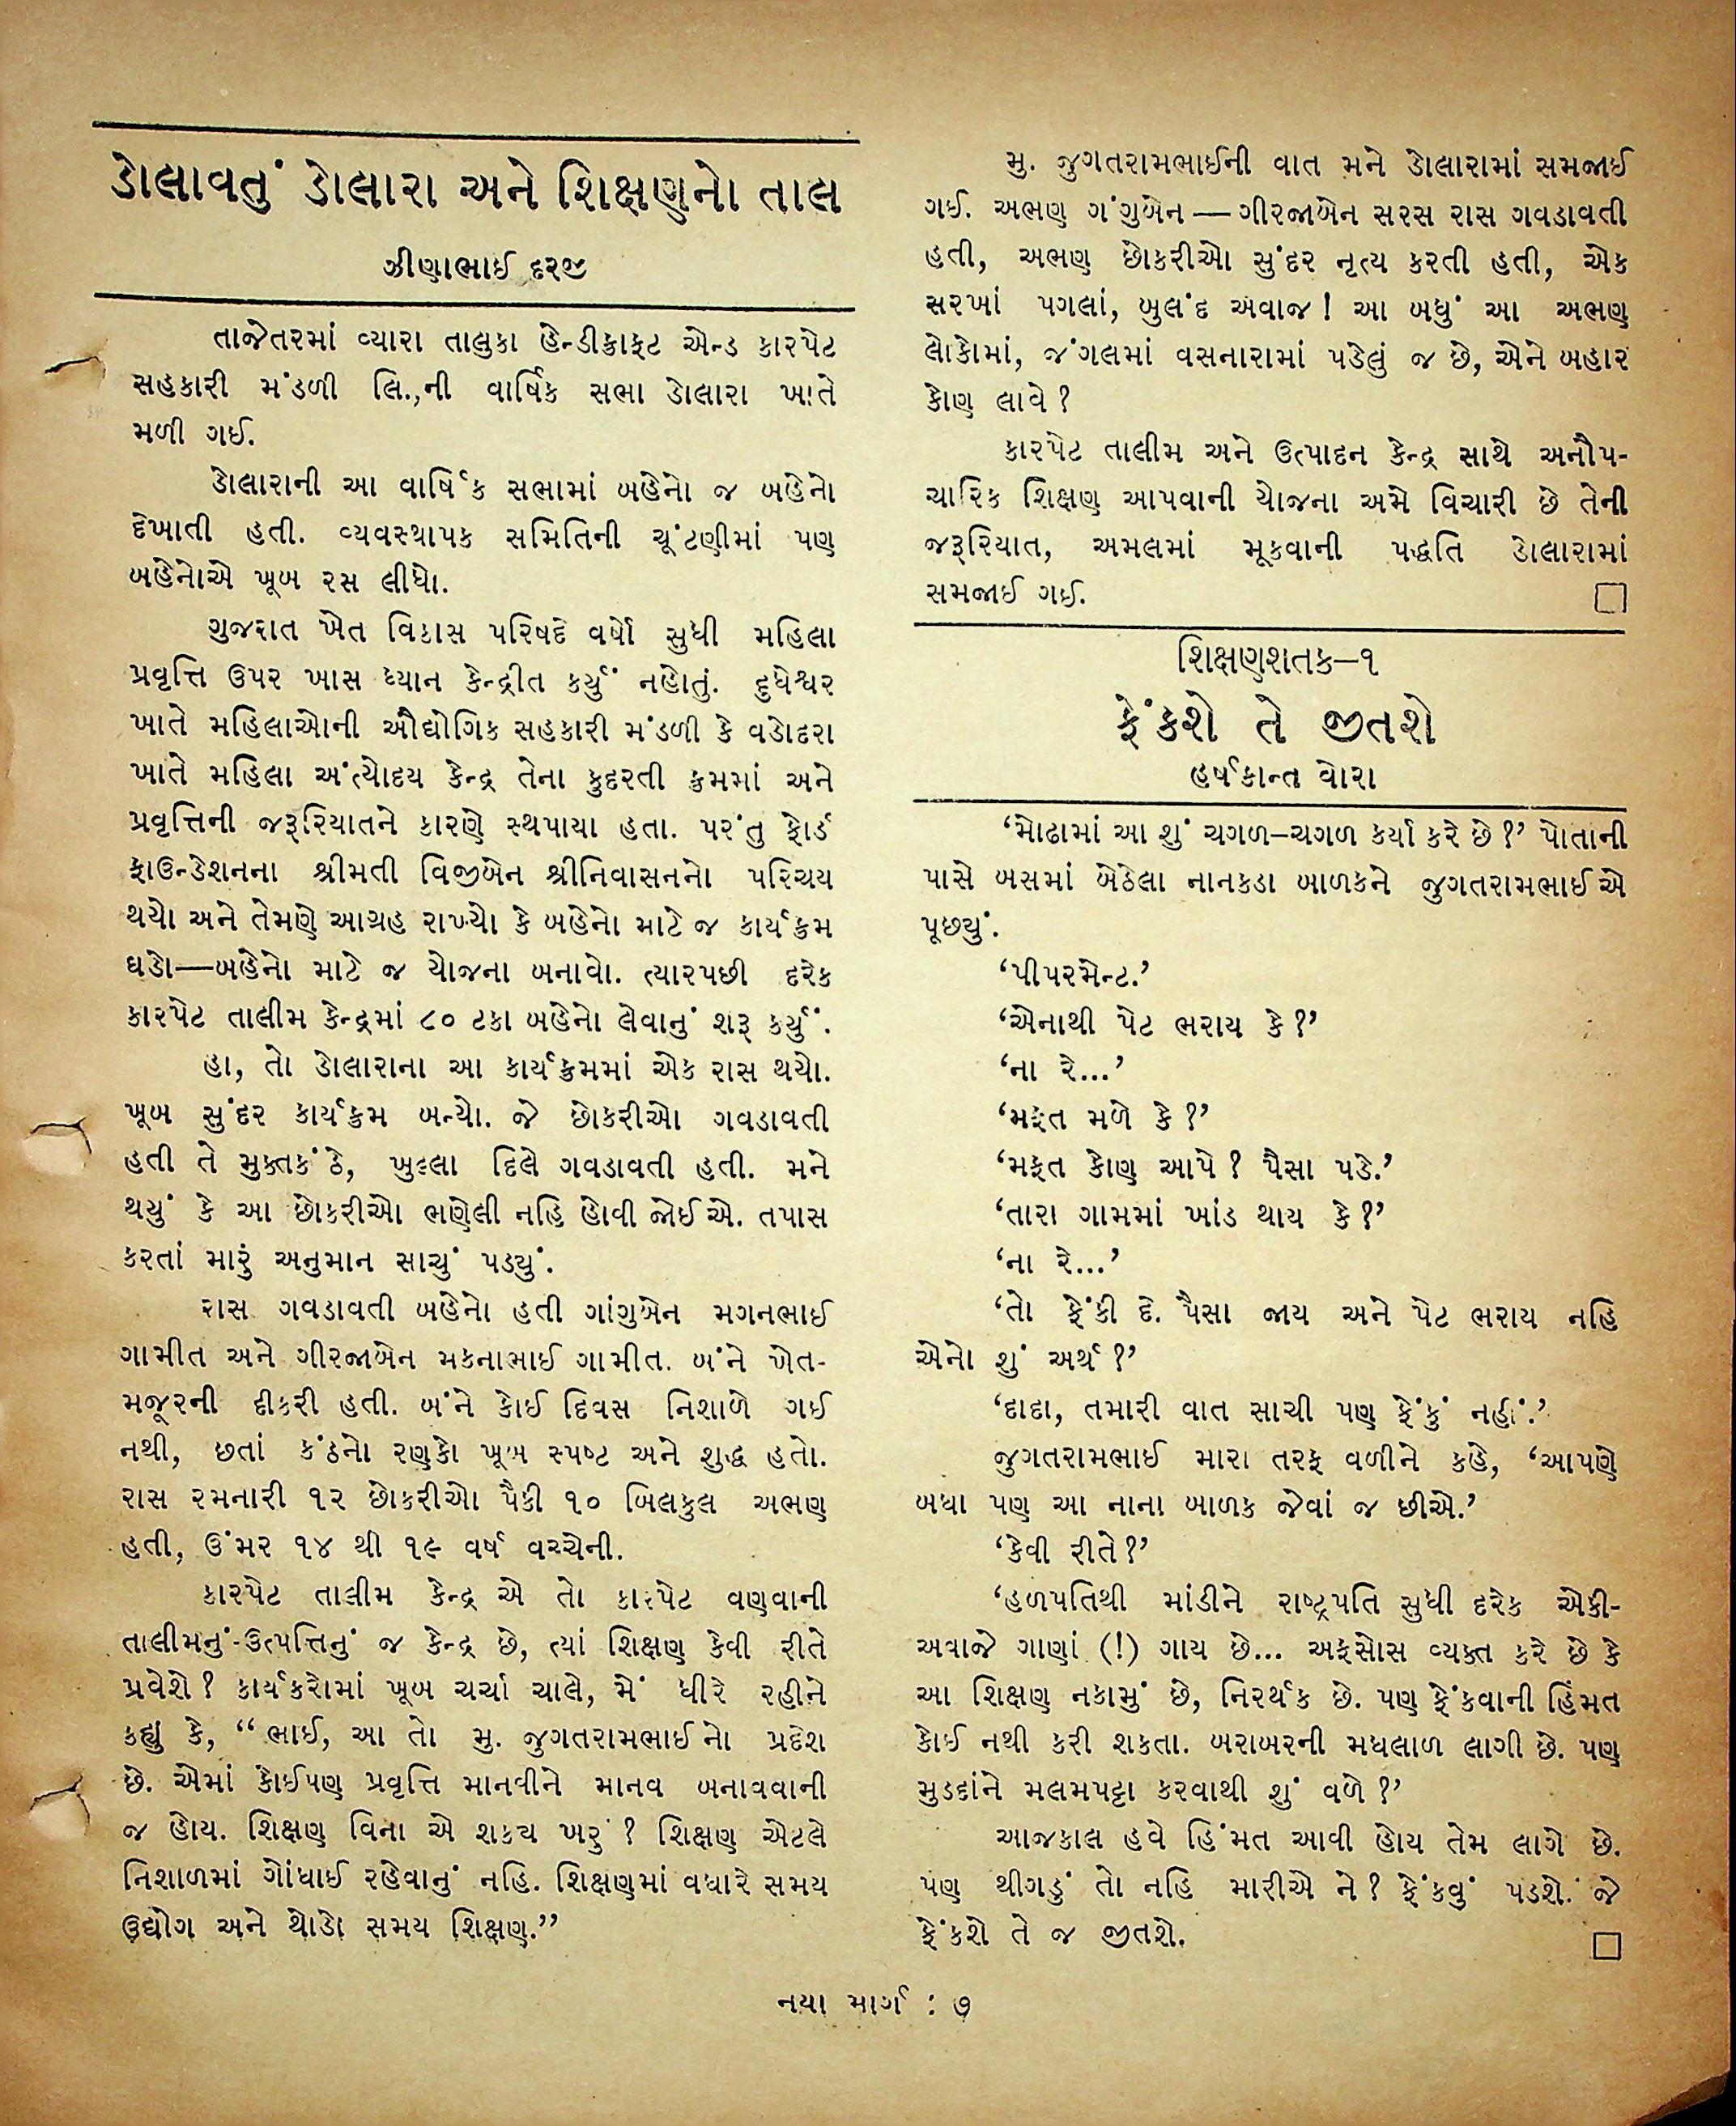 ડોલાવતું ડોલારા અને શિક્ષણનો તાલ
ઝીણાભાઈ દરજી
તાજેતરમાં વ્યારા તાલુકા હેન્ડીક્રાફ્ટ એન્ડ કારપેટ
સહકારી મંડળી લિ.,ની વાર્ષિક સભા ડોલારા ખાતે
મળી ગઈ.
ડોલારાની આ વાર્ષિક સભામાં બહેનો જ બહેનો
દેખાતી હતી. વ્યવસ્થાપક સમિતિની ચૂંટણીમાં પણ
બહેનોએ ખૂબ રસ લીધો.
ગુજરાત ખેત વિકાસ પરિષદે વર્ષો સુધી મહિલા
પ્રવૃત્તિ ઉપર ખાસ ધ્યાન કેન્દ્રીત કર્યું નહોતું. દુધેશ્વર
ખાતે મહિલાઓની ઔદ્યોગિક સહકારી મંડળી કે વડોદરા
ખાતે મહિલા અંત્યોદય કેન્દ્ર તેના કુદરતી ક્રમમાં અને
પ્રવૃત્તિની જરૂરિયાતને કારણે સ્થપાયા હતા. પરંતુ ફોર્ડ
ફાઉન્ડેશનના શ્રીમતી વિજીબેન શ્રીનિવાસનનો પરિચય
થયો અને તેમણે આગ્રહ રાખ્યો કે બહેનો માટે જ કાર્યક્રમ
ઘડો—બહેનો માટે જ યોજના બનાવો. ત્યારપછી દરેક
કારપેટ તાલીમ કેન્દ્રમાં ૮૦ ટકા બહેનો લેવાનું શરૂ કર્યું.
હા, તો ડોલારાના આ કાર્યક્રમમાં એક રાસ થયો.
ખૂબ સુંદર કાર્યક્રમ બન્યો. જે છોકરીઓ ગવડાવતી
હતી તે મુક્તકંઠે, ખુલ્લા દિલે ગવડાવતી હતી. મને
થયું કે આ છોકરીઓ ભણેલી નહિ હોવી જોઈએ. તપાસ
કરતાં મારું અનુમાન સાચું પડયું.
રાસ ગવડાવતી બહેનો હતી ગાંગુબેન મગનભાઈ
ગામીત અને ગીરજાબેન મકનાભાઈ ગામીત. બંને ખેત-
મજૂરની દીકરી હતી. બંને કોઈ દિવસ નિશાળે ગઈ
નથી, છતાં કંઠનો રણકો ખૂબ સ્પષ્ટ અને શુદ્ધ હતો.
રાસ રમનારી ૧૨ છોકરીઓ પૈકી ૧૦ બિલકુલ અભણ
હતી, ઉંમર ૧૪ થી ૧૯ વર્ષ વચ્ચેની.
કારપેટ તાલીમ કેન્દ્ર એ તો કારપેટ વણવાની
તાલીમનું-ઉત્પત્તિનું જ કેન્દ્ર છે, ત્યાં શિક્ષણ કેવી રીતે
પ્રવેશે? કાર્યકરોમાં ખૂબ ચર્ચા ચાલે, મેં ધીરે રહીને
કહ્યું કે, “ભાઈ, આ તો મુ. જુગતરામભાઈનો પ્રદેશ
છે. એમાં કોઈપણ પ્રવૃત્તિ માનવીને માનવ બનાવવાની
જ હોય. શિક્ષણ વિના એ શકય ખરું? શિક્ષણ એટલે
નિશાળમાં ગોંધાઈ રહેવાનું નહિ. શિક્ષણમાં વધારે સમય
ઉદ્યોગ અને થોડો સમય શિક્ષણ.”
મુ. જુગતરામભાઈની વાત મને ડોલારામાં સમજાઈ
ગઈ. અભણ ગંગુબેન—ગીરજાબેન સરસ રાસ ગવડાવતી
હતી, અભણ છોકરીઓ સુંદર નૃત્ય કરતી હતી, એક
સરખાં પગલાં, બુલંદ અવાજ! આ બધું આ અભણ
લોકોમાં, જંગલમાં વસનારામાં પડેલું જ છે, એને બહાર
કોણ લાવે?
કારપેટ તાલીમ અને ઉત્પાદન કેન્દ્ર સાથે અનૌપ-
ચારિક શિક્ષણ આપવાની યોજના અમે વિચારી છે તેની
જરૂરિયાત, અમલમાં મૂકવાની પદ્ધતિ ડોલારામાં
સમજાઈ ગઈ.
શિક્ષણશતક–૧
ફેંકશે તે જીતશે
હર્ષકાન્ત વોરા
‘મોઢામાં આ શું ચગળ–ચગળ કર્યા કરે છે?’ પોતાની
પાસે બસમાં બેઠેલા નાનકડા બાળકને જુગતરામભાઈએ
પૂછયું.
‘પીપરમેન્ટ.’
‘એનાથી પેટ ભરાય કે?’
‘ના રે...’
‘મફત મળે કે?’
‘મફત કોણ આપે? પૈસા પડે.’
‘તારા ગામમાં ખાંડ થાય કે?’
‘ના રે...’
‘તો ફેંકી દે. પૈસા જાય અને પેટ ભરાય નહિ
એનો શું અર્થ?’
‘દાદા, તમારી વાત સાચી પણ ફેંકું નહીં.’
જુગતરામભાઈ મારા તરફ વળીને કહે, ‘આપણે
બધા પણ આ નાના બાળક જેવાં જ છીએ.’
‘કેવી રીતે?’
‘હળપતિથી માંડીને રાષ્ટ્રપતિ સુધી દરેક એકી-
અવાજે ગાણાં (!) ગાય છે... અફસોસ વ્યક્ત કરે છે કે
આ શિક્ષણ નકામું છે, નિરર્થક છે. પણ ફેંકવાની હિંમત
કોઈ નથી કરી શકતા. બરાબરની મધલાળ લાગી છે. પણ
મુડદાંને મલમપટ્ટા કરવાથી શું વળે?’
આજકાલ હવે હિંમત આવી હોય તેમ લાગે છે.
પણ થીગડું તો નહિ મારીએ ને? ફેંકવું પડશે. જે
ફેંકશે તે જ જીતશે.
નયા માર્ગ : ૭